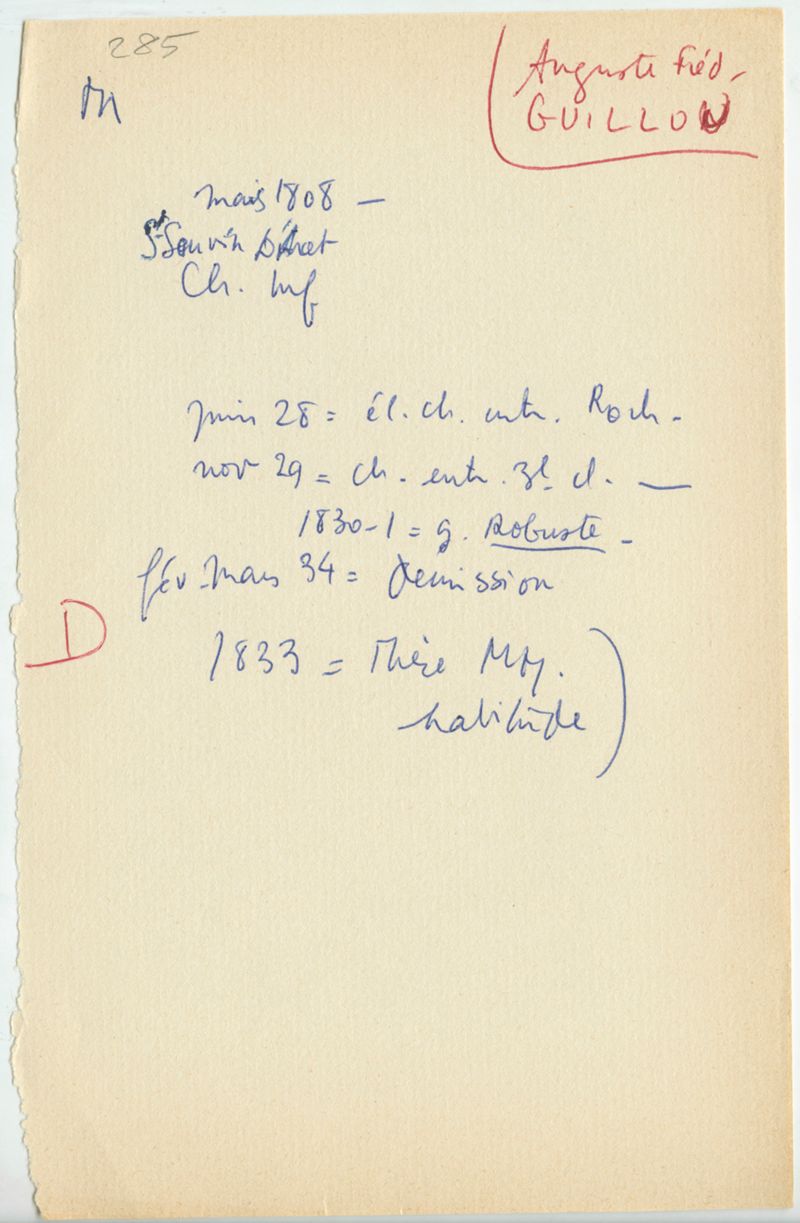 285
M
Auguste Fréd.
GUILLON
mars 1808 —
St Souvin
Ch. Inf
juin 28 = él. ch. entr. Roch.
nov 29 = ch. entr. 3e cl. —
1830-1 = g. Robuste.
fév-mars 34 = Démission
D
1833 = Thèse
habitude